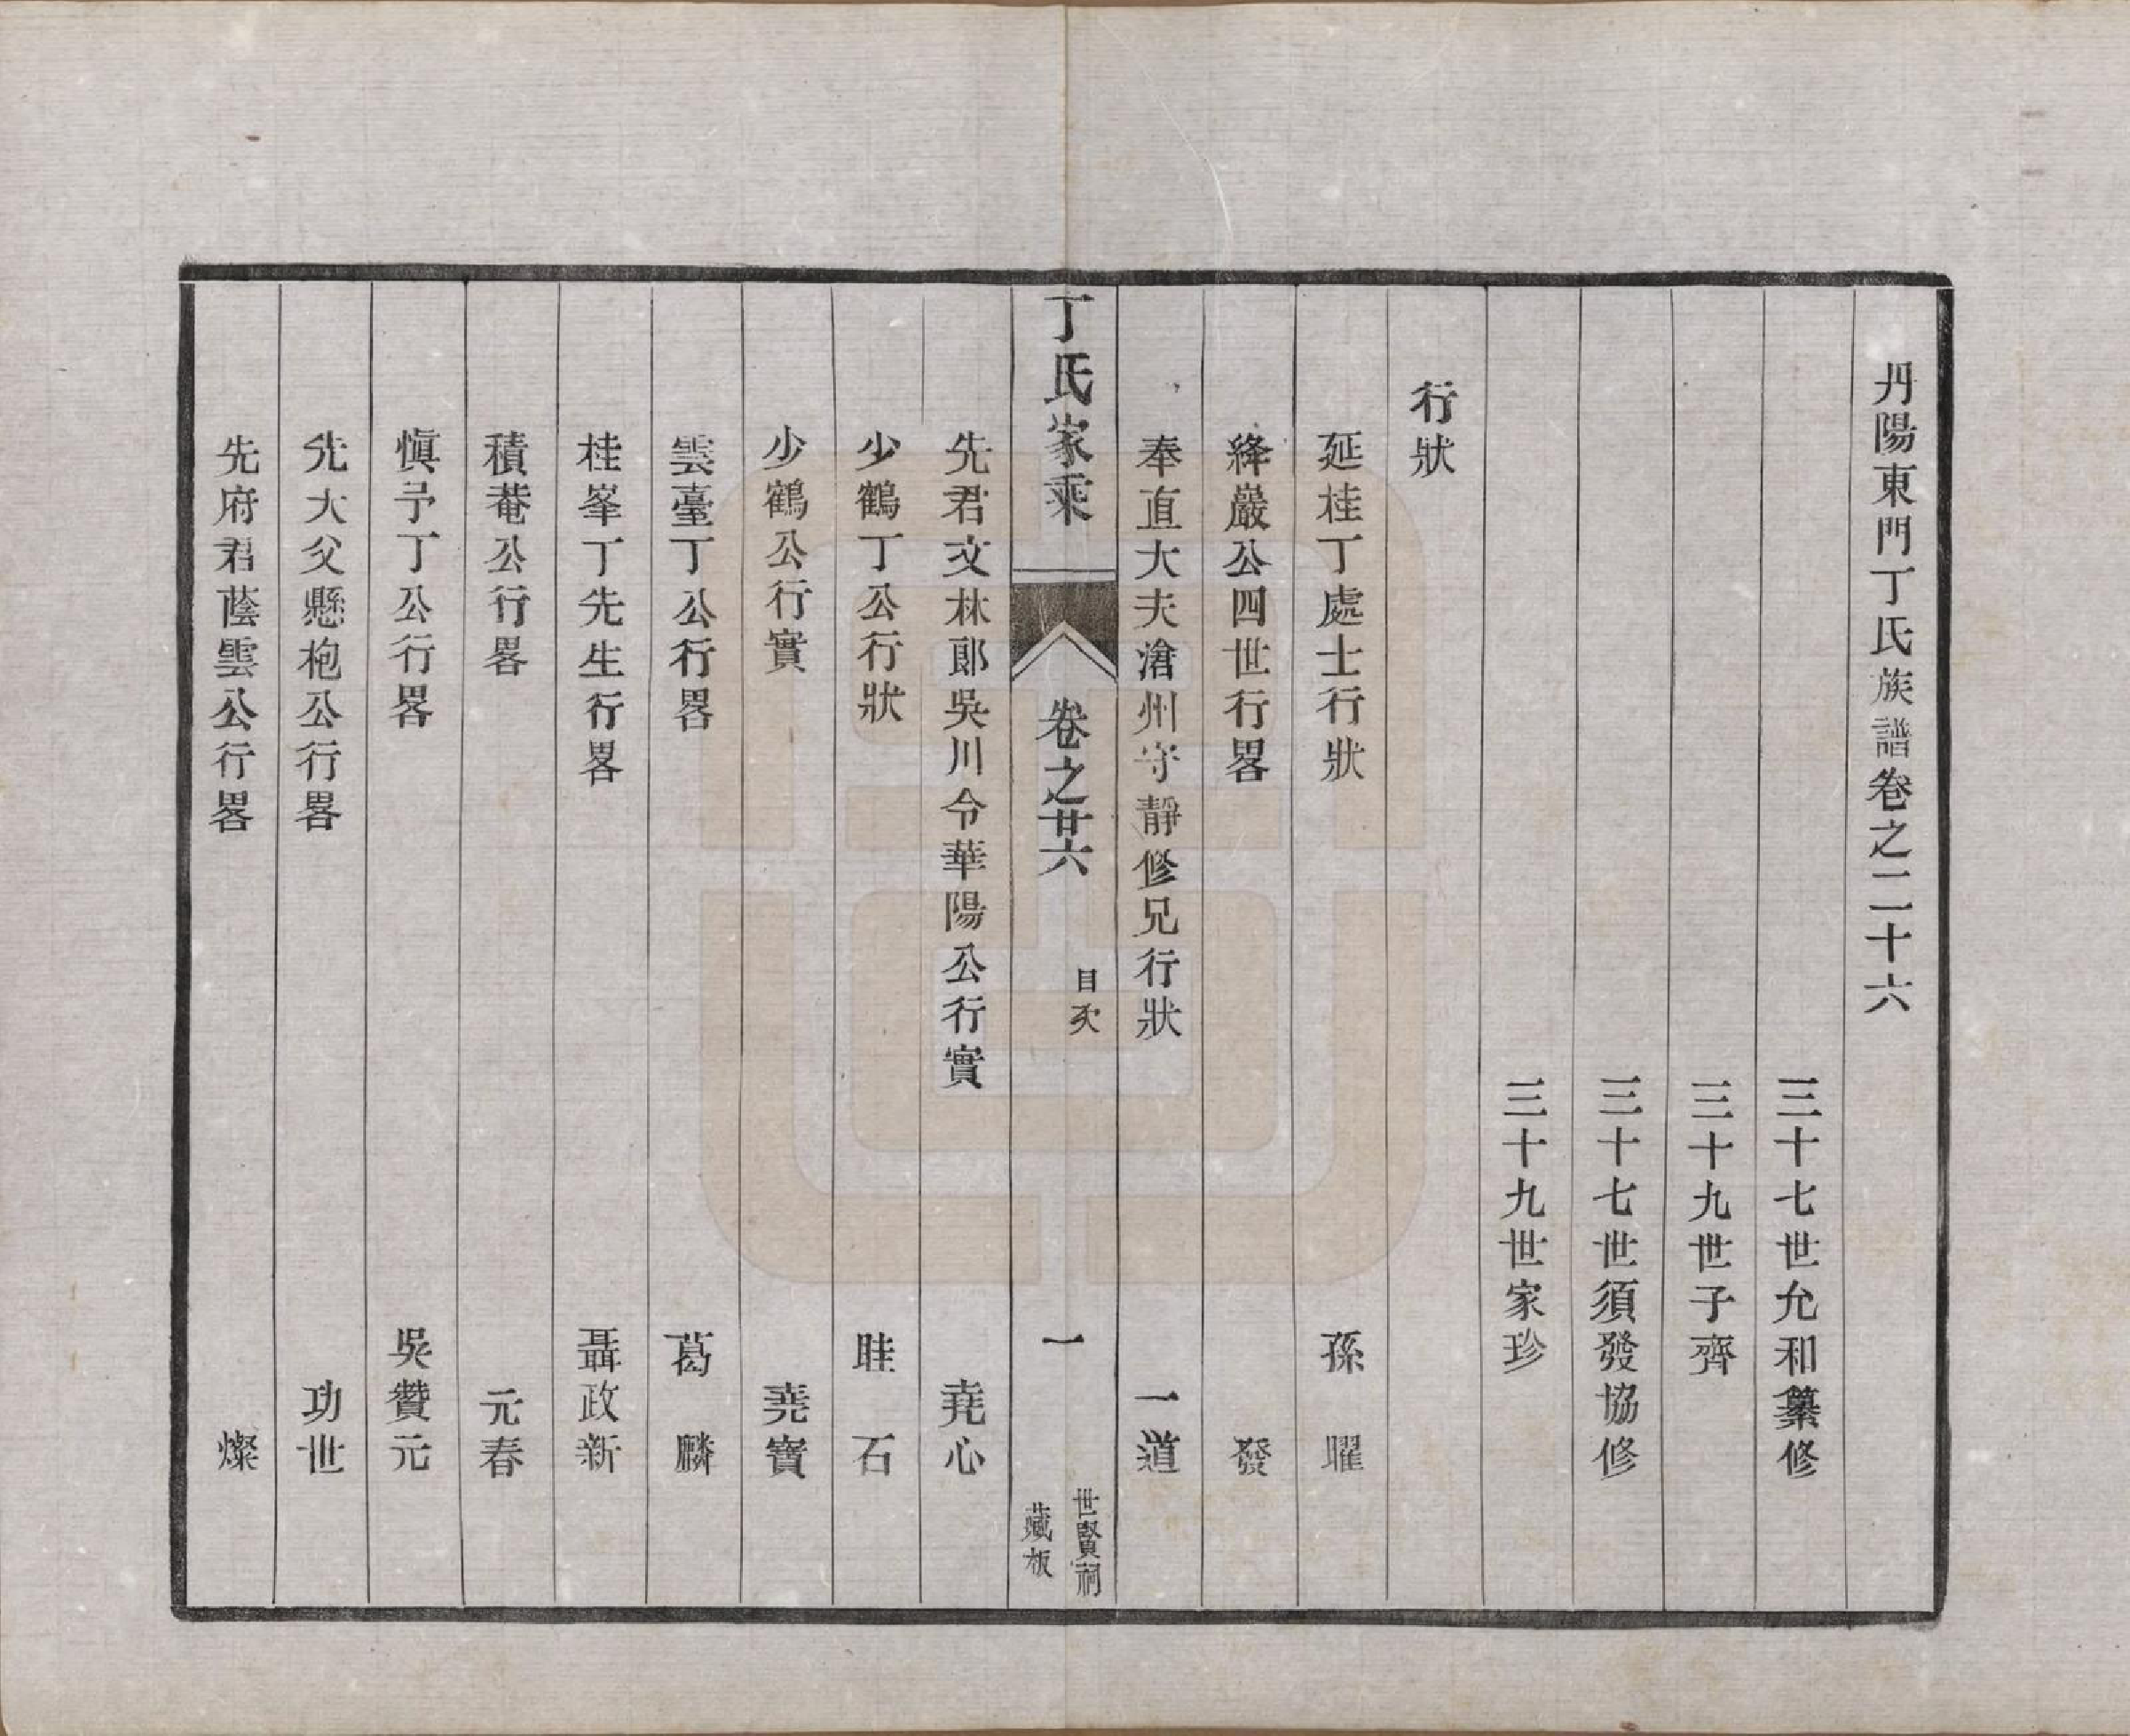 丹陽東門丁氏族譜卷之二十六
三十七世允和纂修
三十九世子齊
三十七世須發協修
三十九世家珍
行狀
延桂丁處士行狀 孫曜
絳巖公四世行畧 發
奉直大夫滄州守靜修兄行狀 一道
丁氏家乘 卷之廿六 目次 一 世賢祠藏板
先君文林郞吳川令華陽公行實 堯心
少鶴丁公行狀 眭石
少鶴公行實 堯寶
雲臺丁公行畧 葛麟
桂峯丁先生行畧 聶政新
積菴公行畧 元春
愼予丁公行畧 吳贊元
先大父懸枹公行畧 功世
先府君蔭雲公行畧 燦